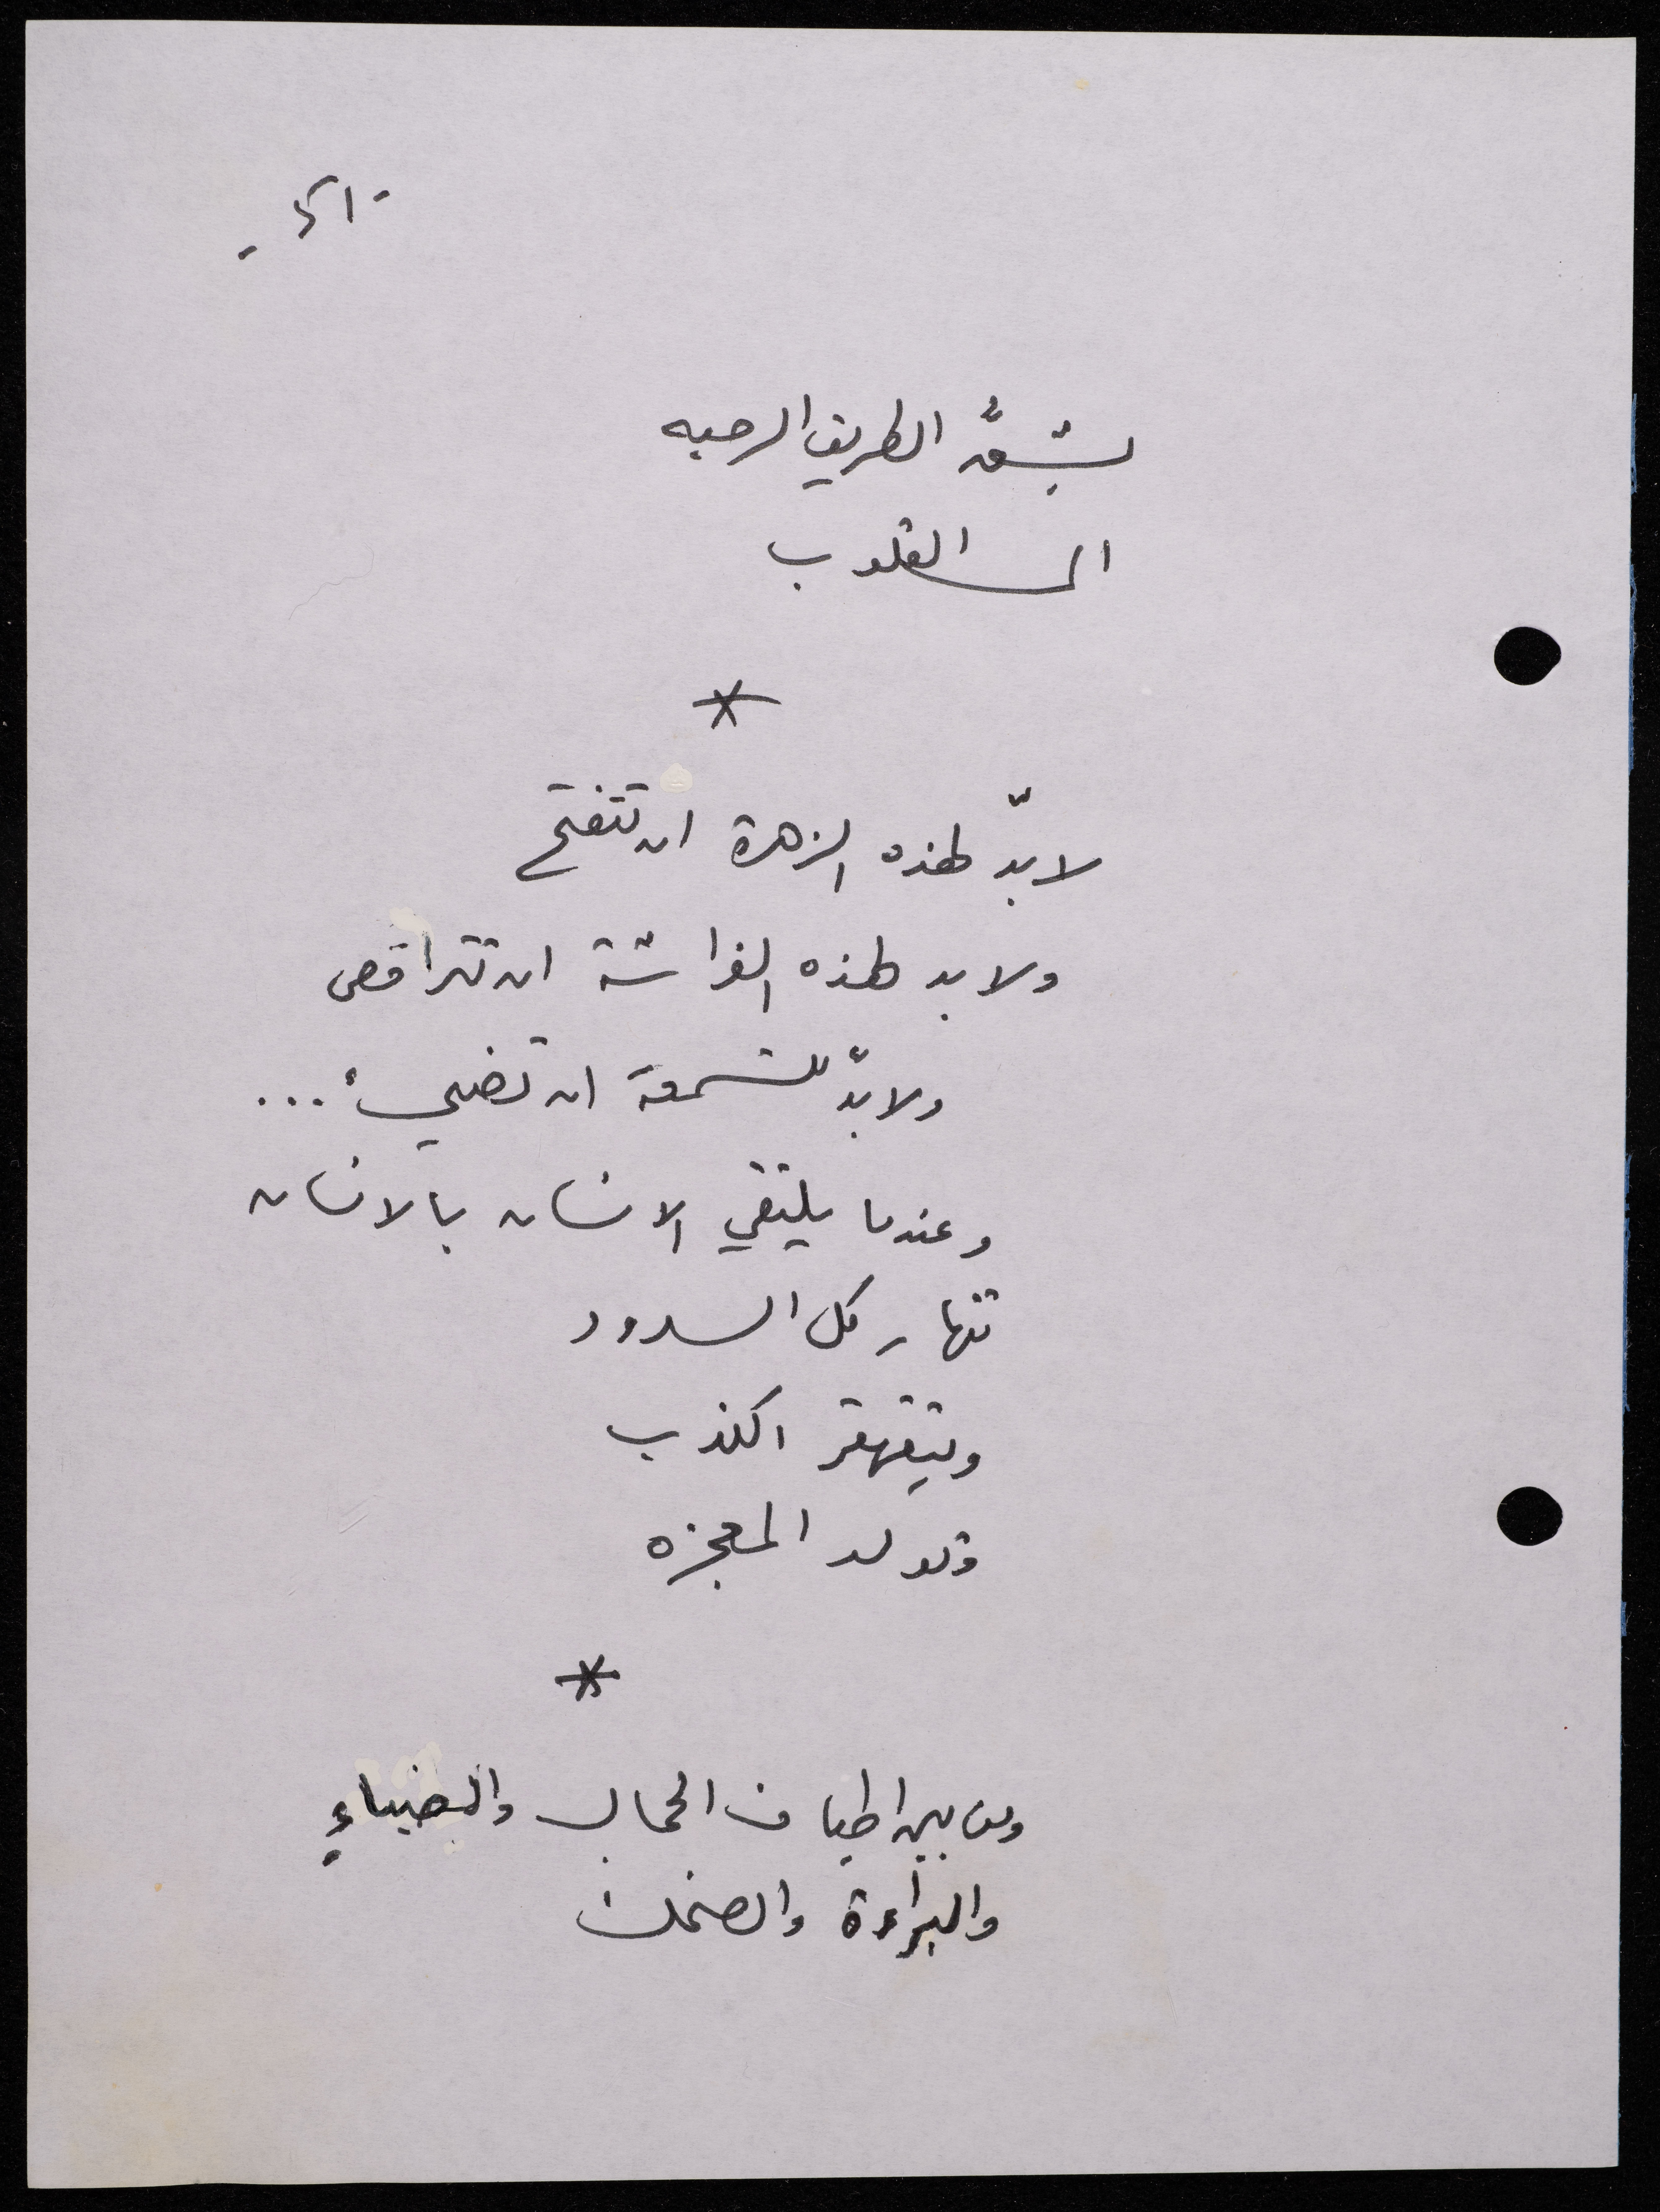 يشقّ الطريق الرحبه
الى القلوب
*
لا بدّ لهذه الزهرة ان تتفتح
ولا بد لهذه الفراشة ان تتراقص
ولا بدّ للشمعة ان تضيء...
وعندما يلتقي الانسان بالانسان
تنهار كل السدود
ويتقهقر الكذب
وتولد المعجزه
*
ومن بين اطياف الجمال والضياءِ
والبراءة والضحك